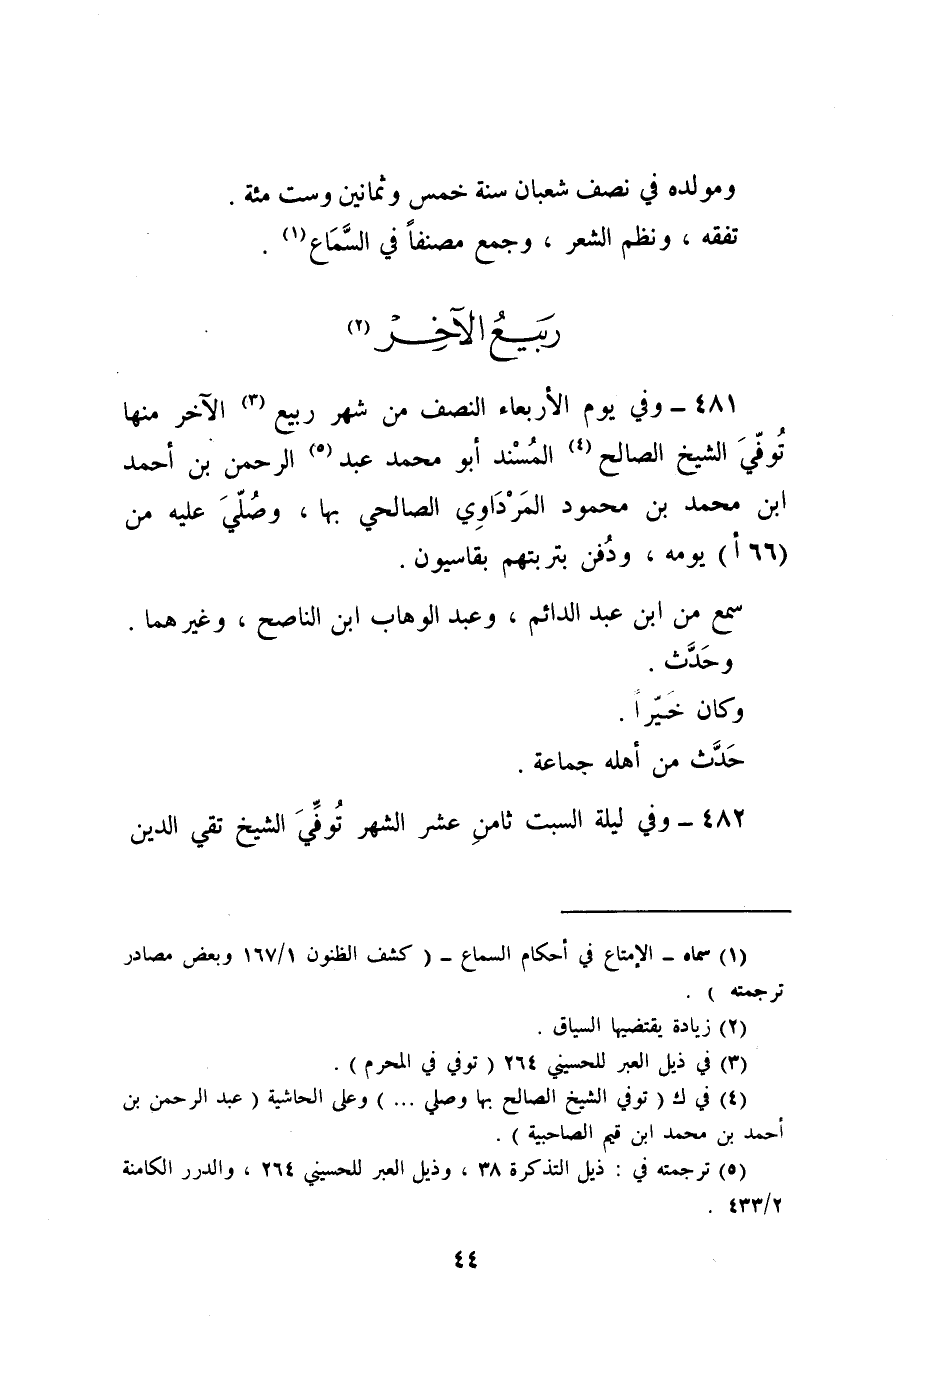 ومولده في نصف شعبان سنة خمس وثمانين وست مئة .
تفقه ، ونظم الشعر ، وجمع مصنفاً في السَّمَاع (١) .
رَبيعُ الآخِر (٢)
٤٨١ ــ وفي يوم الأربعاء النصف من شهر ربيع (٣) الآخر منها
تُوفّيَ الشيخ الصالح (٤) المُسْند أبو محمد عبد (٥) الرحمن بن أحمد
ابن محمد بن محمود المَرْدَاوِي الصالحي بها ، وصُلّيَ عليه من
(٦٦ أ) يومه ، ودُفن بتربتهم بقاسيون .
سمع من ابن عبد الدائم ، وعبد الوهاب ابن الناصح ، وغيرهما .
وحَدَّث .
وكان خَيّراً .
حَدَّث من أهله جماعة .
٤٨٢ ــ وفي ليلة السبت ثامنِ عشر الشهر تُوفِّيَ الشيخ تقي الدين
(١) سماه ــ الإمتاع في أحكام السماع ــ ( كشف الظنون ١/١٦٧ وبعض مصادر
ترجمته ) .
(٢) زيادة يقتضيها السياق .
(٣) في ذيل العبر للحسيني ٢٦٤ ( توفي في المحرم ) .
(٤) في ك ( توفي الشيخ الصالح بها وصلي ... ) وعلى الحاشية ( عبد الرحمن بن
أحمد بن محمد ابن قيم الصاحبية ) .
(٥) ترجمته في : ذيل التذكرة ٣٨ ، وذيل العبر للحسيني ٢٦٤ ، والدرر الكامنة
٢/٤٣٣ .
٤٤